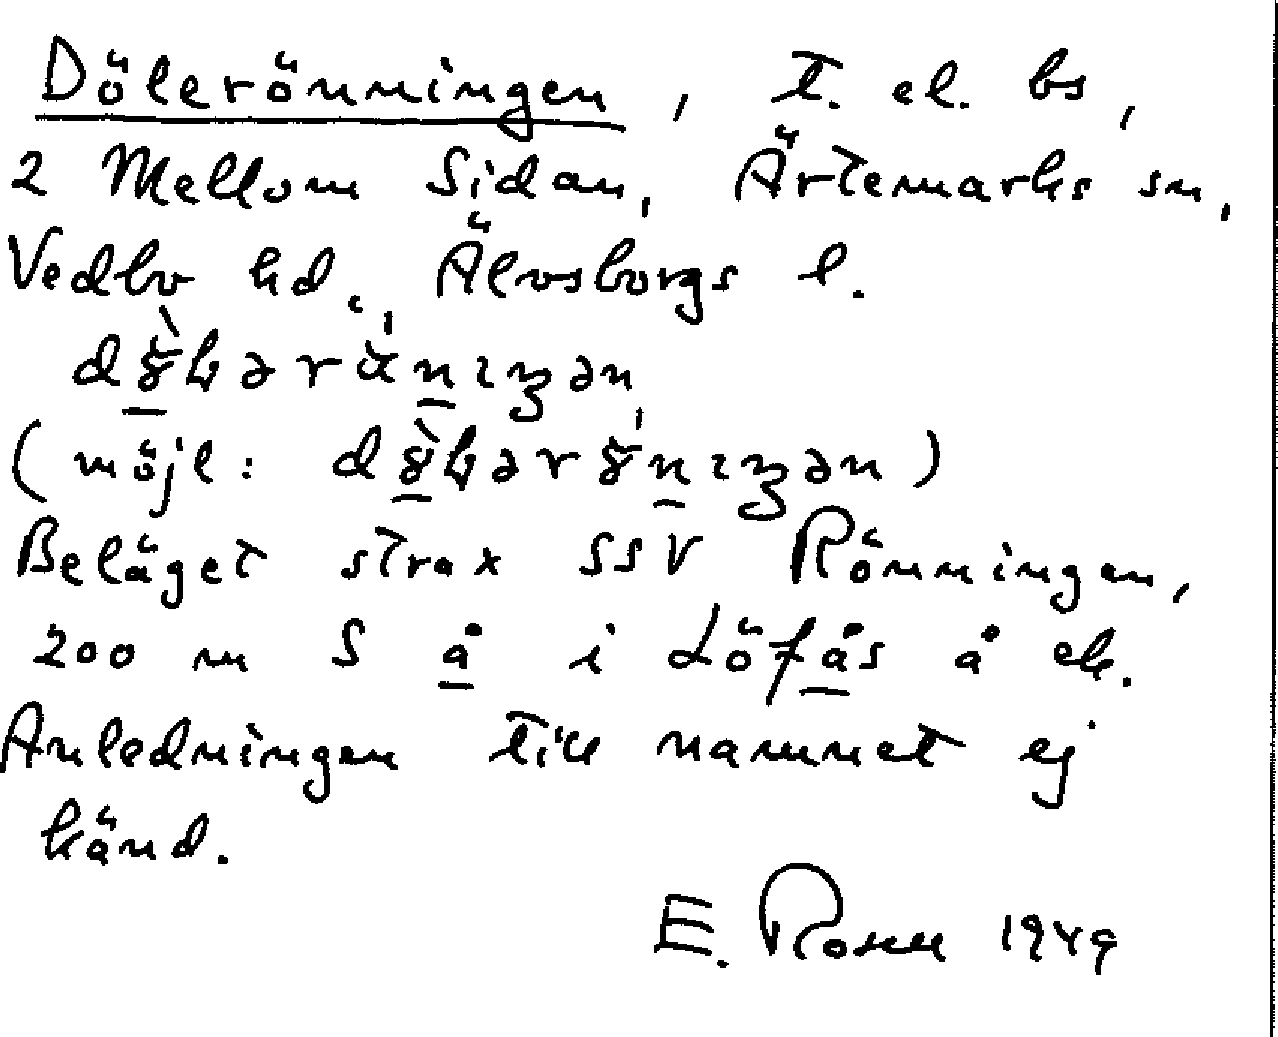 Dölerönningen, t. el. bs,
2 Mellom Sidan, Ärtemarks sn,
Vedbo hd., Älvsborgs l.
(möjl:
Beläget strax SSV Rönningen,
200 m S å i Löfås å ek.
Anledningen till namnet ej
känd.
E. Rosell 1949